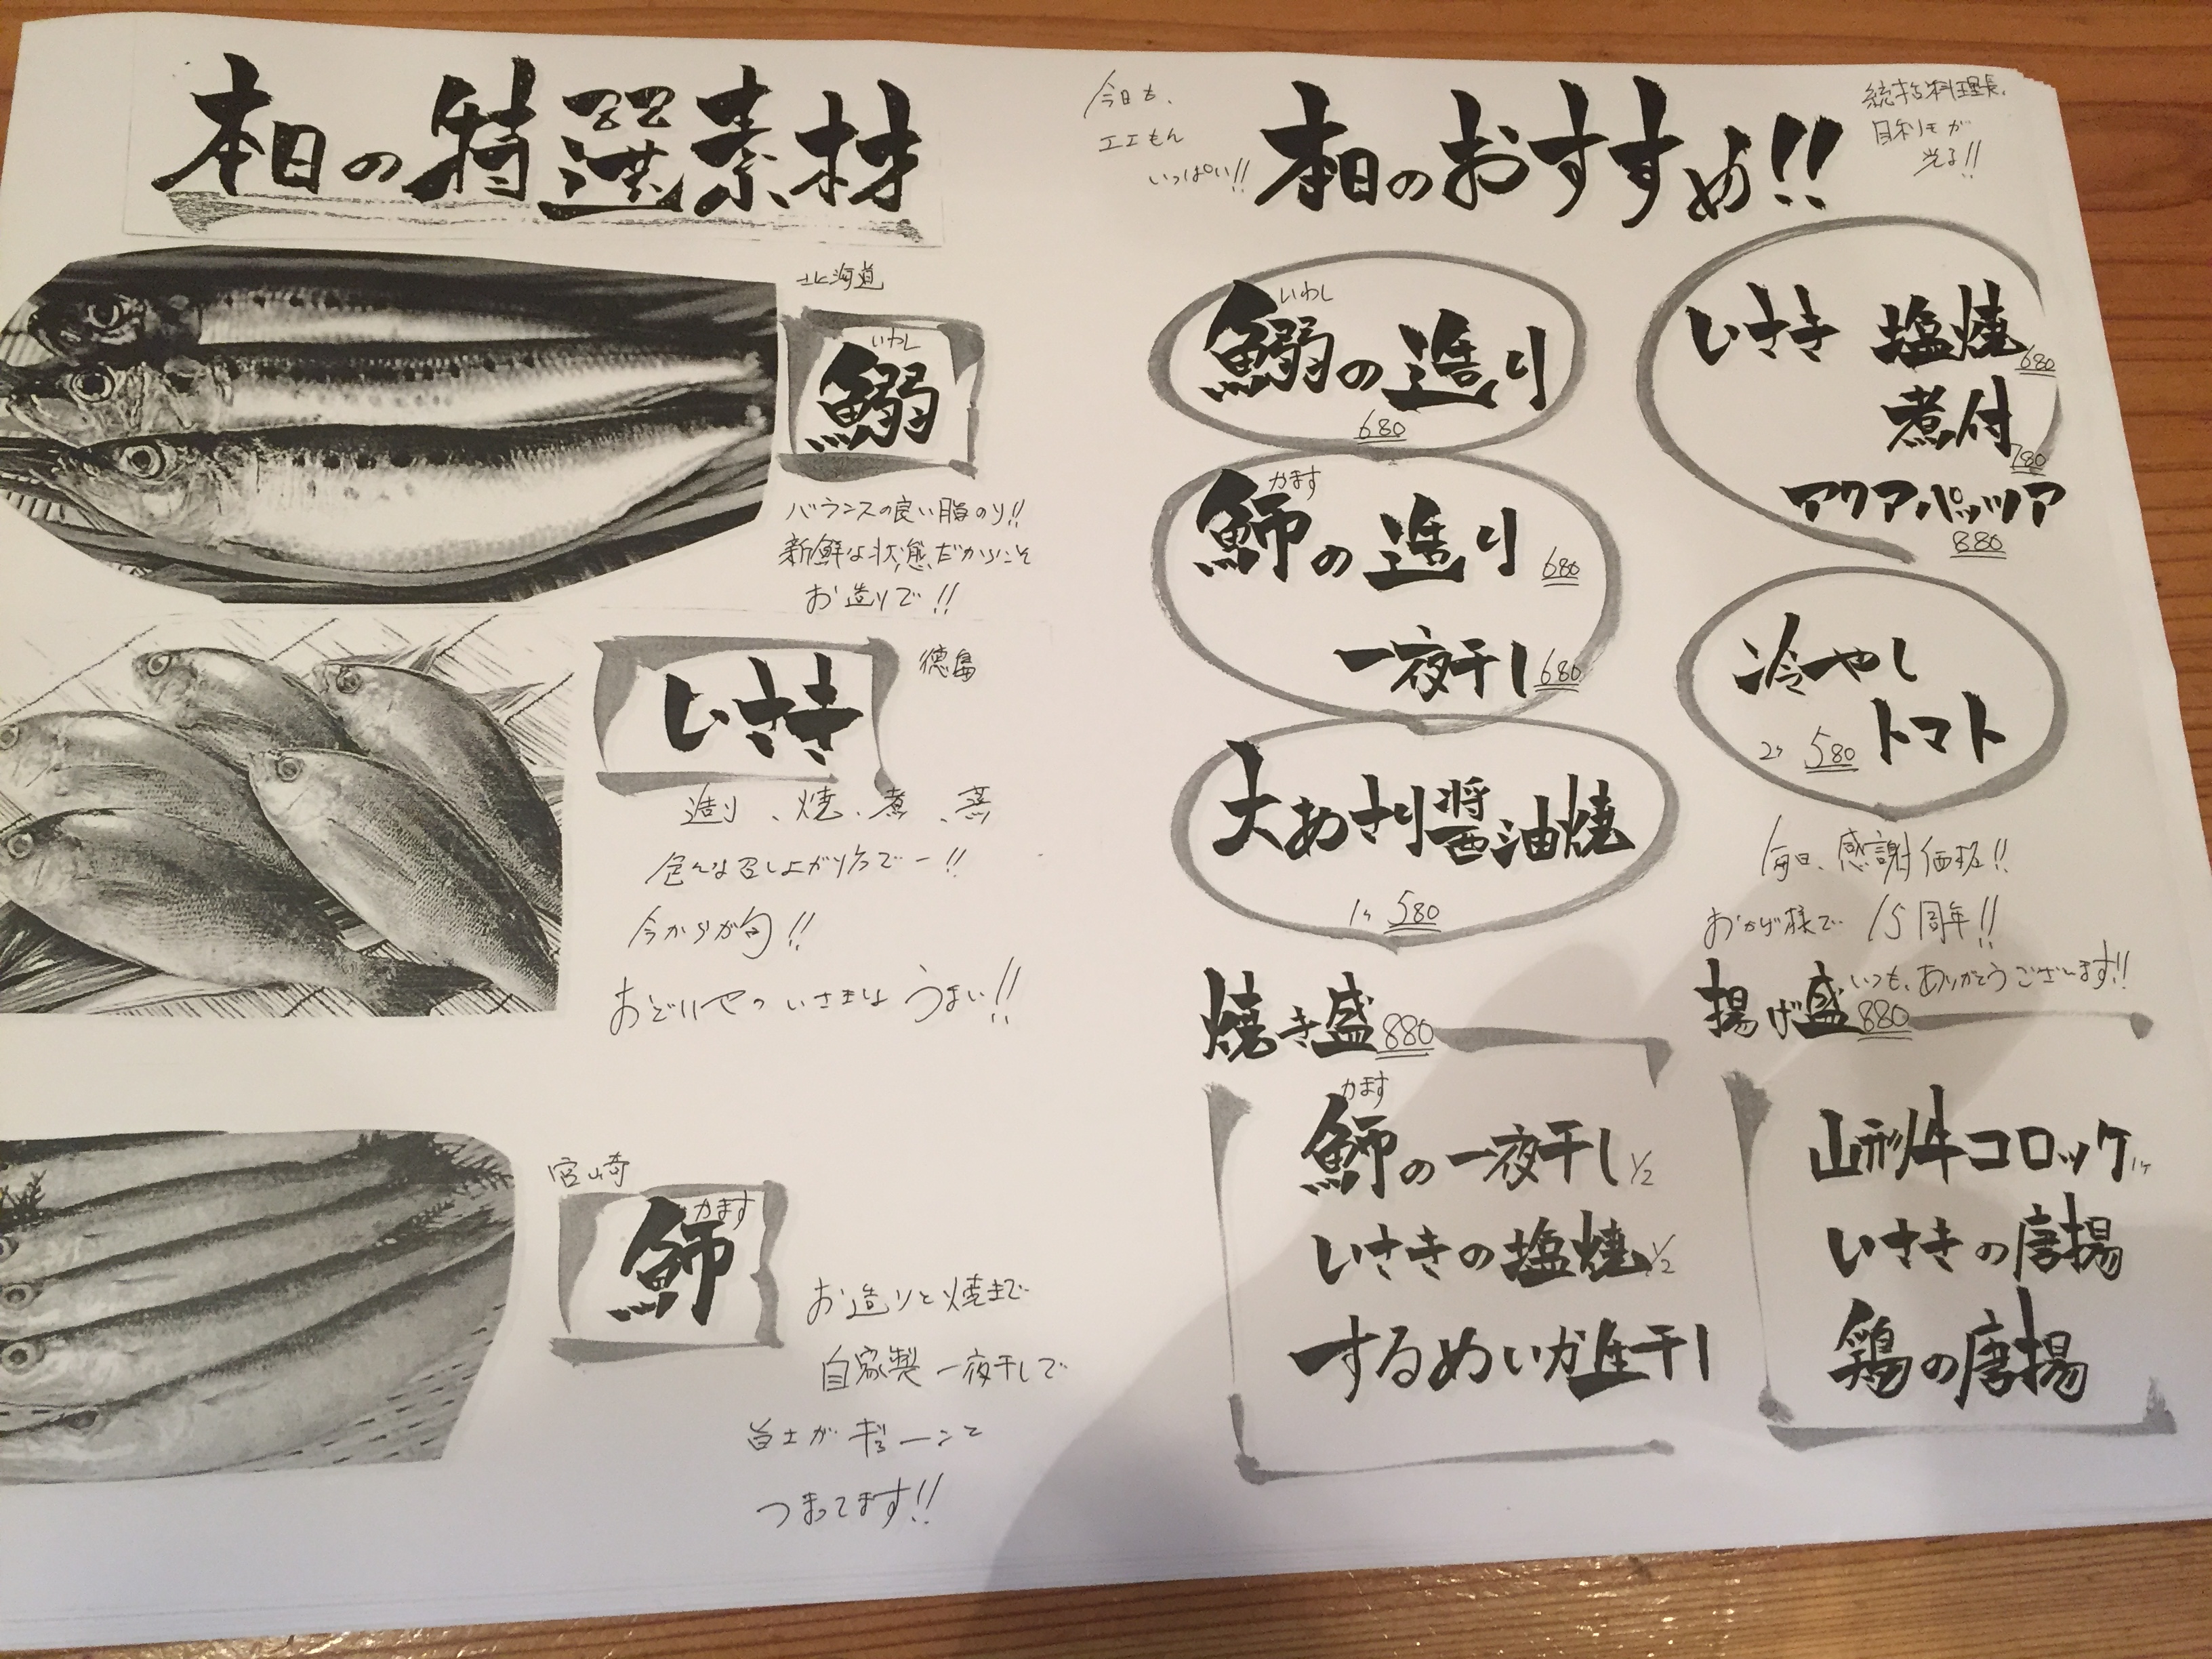 本日の特選素材
北海道
いわし
鰯
バランスの良い脂のり!!
新鮮な状態だからこそ
お造りで!!
いさき
徳島
造り、焼、煮、蒸
色んな召し上がり方でー!!
今からが旬!!
いさきは うまい!!
宮崎
かます
魳
お造りと焼まで
自家製 一夜干しで
旨味が ギューンと
つまってます!!
今日も、
エエもん
いっぱい!!
本日のおすすめ!!
統括料理長、
目利きが
光る!!
いわし
鰯の造り
680
かます
魳の造り 680
一夜干し 680
大あさり醤油焼
1ケ 580
いさき 塩焼 680
煮付 780
アクアパッツア
880
冷やし
トマト
2ケ 580
毎日、感謝価格!!
おかげ様で 15周年!!
いつも、ありがとうございます!!
焼き盛 880
かます
魳の一夜干し 1/2
いさきの塩焼 1/2
するめいか生干し
揚げ盛 880
山形牛コロッケ 1ケ
いさきの唐揚
鶏の唐揚